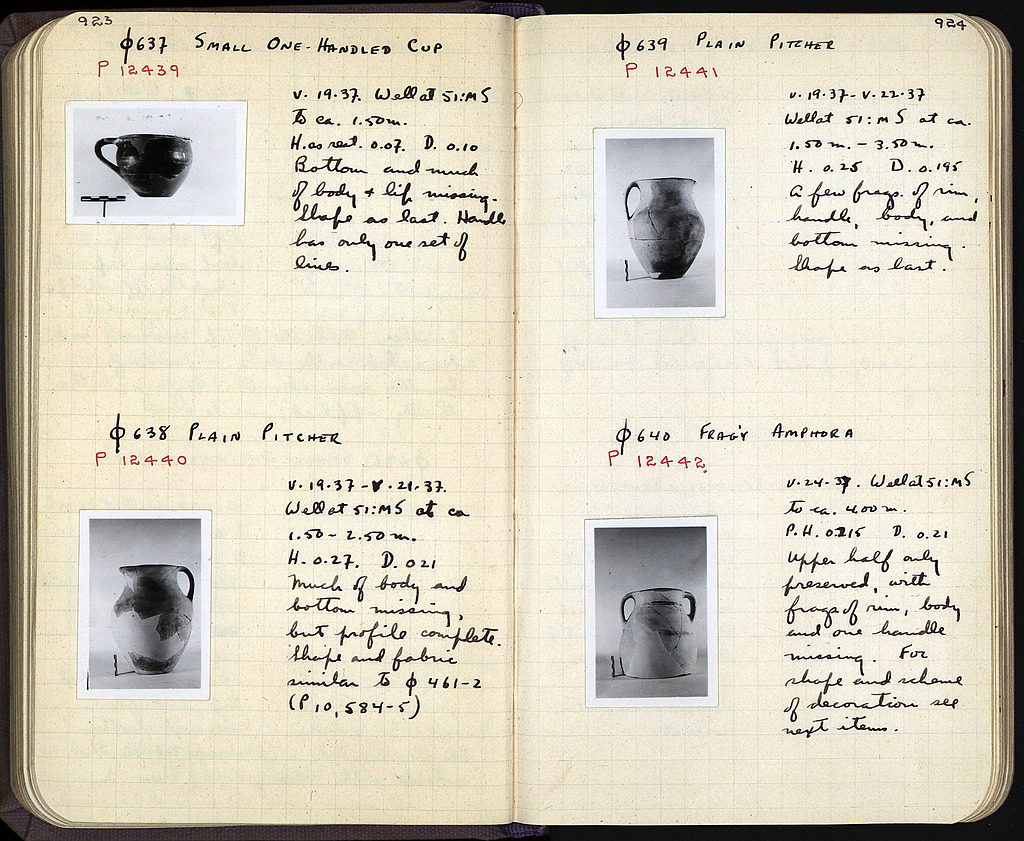 923
ϕ637 SMALL ONE-HANDLED CUP
P 12439
v. 19.37. Well at 51:MS
to ca. 1.50 m.
H. as rest. 0.07. D. 0.10
Bottom and much
of body + lip missing.
Shape as last. Handle
has only one set of
lines.
ϕ638 PLAIN PITCHER
P 12440
v. 19.37 - v. 21.37.
Well at 51:MS at ca
1.50 - 2.50 m.
H. 0.27. D. 0.21
Much of body and
bottom missing,
but profile complete.
Shape and fabric
similar to ϕ 461-2
(P 10,584-5)
924
ϕ639 PLAIN PITCHER
P 12441
v. 19.37 - v. 22.37
Well at 51:MS at ca.
1.50 m. - 3.50 m.
H. 0.25 D. 0.195
A few frags. of rim,
handle, body, and
bottom missing.
Shape as last.
ϕ640 FRAG'Y AMPHORA
P 12442.
v. 24.37. Well at 51:MS
to ca. 4.00 m.
P.H. 0.215 D. 0.21
Upper half only
preserved, with
frags of rim, body
and one handle
missing. For
shape and scheme
of decoration see
next items.